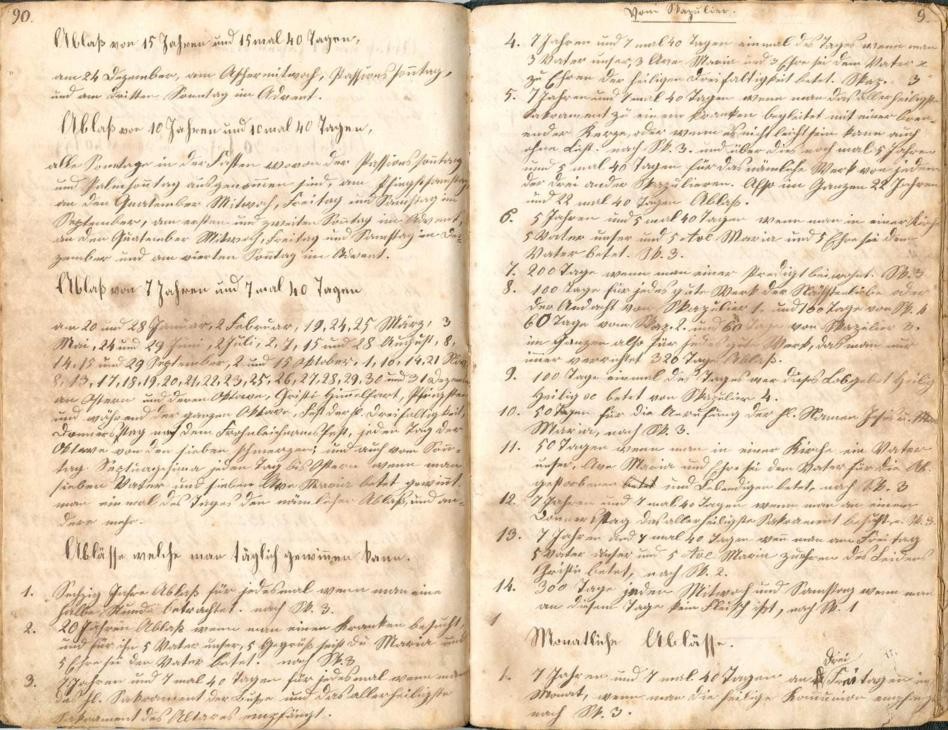 90.
Ablaß von 15 Jahren und 15 mal 40 Tagen,
am 24 Dezember, am Aschermitwoch, Passionssontag,
und am dritten Sonntag in Advent.
Ablaß von 10 Jahren und 10 mal 40 Tagen,
alle Sontage in der Fasten wovon der Passionssontag
und Palmsontag ausgenommen sind, am
an den Quatember Mitwoch, Freitag und Samstag im
September, am ersten und zweiten Sontag im Advent,
an den Quatember Mitwoch, Freitag und Samstag im De-
zember und am vierten Sontag im Advent.
Ablaß von 7 Jahren und 7 mal 40 Tagen
am 20 und 28 Januar, 2 Februar, 19, 24, 25 März, 3
Mai, 24 und 29 Juni, 2 Juli, 2, 7, 15 und 28 August, 8,
14, 15 und 29 September, 2 und 15 Oktober, 1, 10, 14, 21 Nov
8, 13, 17, 18, 19, 20, 21, 22, 23, 25, 26, 27, 28, 29, 30 und 31 Dezem
an Ostern und deren Oktave, Christi Himelfart, Pfingsten
und während der ganzen Oktave, Fest der h. Dreifaltigkeit,
Donnerstag nach dem Frohnleichnamsfest, jeden Tag der
Oktave von den sieben Schmerzen; und auch vom Son-
tag Septuagesima jeden Tag bis Ostern wenn man
sieben Vater und sieben Ave Maria betet gewint
man einmal des Tages den nämlichen Ablaß, und an-
dere mehr.
Ablässe welche man täglich gewinen kann.
1. Sechzig Jahre Ablaß für jedesmal wenn man eine
halbe Stunde betrachtet. nach Sk. 3.
2. 20 Jahren Ablaß wenn man einen Kranken besucht,
und für ihn 5 Vater unser, 5 Gegrüß seist du Maria und
5 Ehre sei den Vater betet. nach Sk. 3
3. 7 Jahren und 7 mal 40 Tagen für jedesmal wenn man
das hl. Sakrament der Buße und das allerheiligste
Sakrament des Altares empfängt.
Vom Skapulier.
9
4. 7 Jahren und 7 mal 40 Tagen einmal des Tages wenn man
3 Vater unser, 3 Ave Maria und 3 Ehre sei den Vater x
zu Ehren der heiligen Dreifaltigkeit betet. Skap. 3
5. 7 Jahren und 7 mal 40 Tagen wenn man das Allerheiligste
Sakrament zu einem Kranken begleitet mit einer bren-
ender Kerze, oder wenn es nicht leicht sein kann auch
ohne Licht. nach Sk. 3. und über dies noch mal 5 Jahren
und 5 mal 40 Tagen für das nämliche Werk von jedem
der drei ander Skapulieren. Also im Ganzen 22 Jahren
und 22 mal 40 Tagen Ablaß.
6. 5 Jahren und 5 mal 40 Tagen wenn man in einer Kirche
5 Vater unser und 5 Ave Maria und 5 Ehre sei dem
Vater betet. Sk. 3.
7. 200 Tage wenn man einer Predigt beiwohnt. Sk. 3
8. 100 Tage für jedes gute Werk der Nächstenliebe oder
der Andacht vom Skapulier 1. und 100 Tage von Sk. 4
60 Tage vom Skap. 2. und 60 Tage von Skapulier 3.
im Ganzen also für jedes gute Werk, das man nur
immer verrichtet 320 Tage Ablaß.
9. 100 Tage einmal des Tages wer dieses Lobgebet Heilig
Heilig betet von Skapulier 4.
10. 50 Tagen für die Anrufung der hl. Namen Jesu u. Ma
Maria, nach Sk. 3.
11. 50 Tagen wenn man in einer Kirche ein Vater
unser, Ave Maria und Ehre sei den Vater für die Ab-
gestorbenen betet und Lebendigen betet, nach Sk. 3
12. 7 Jahren und 7 mal 40 Tagen wenn man an einem
Donnerstag das allerheiligste Sakrament besucht n. Sk. 3.
13. 7 Jahren und 7 mal 40 Tagen wen man am Freitag
5 Vater unser und 5 Ave Maria zu ehren des Leidens
Christi betet, nach Sk. 2.
14. 300 Tage jeden Mitwoch und Samstag wenn man
an diesem Tage kein Fleisch ißt, nach Sk. 1
Monatliche Ablässe.
1. 7 Jahren und 7 mal 40 Tagen an drei Freitagen im
Monat, wenn man die heilige Komunion empfängt
nach Sk. 3.